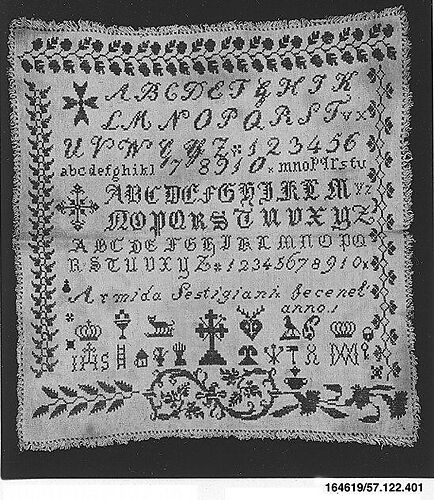 A B C D E F G H I K
L M N O P Q R S T v x
U V W Y Z × 1 2 3 4 5 6
a b c d e f g h i k l 7 8 9 1 0 × m n o p q r s t u
A B C D E F G H I K L M y z
N O P Q R S T U V X Y Z
A B C D E F G H I K L M N O P Q
R S T U V X Y Z × 1 2 3 4 5 6 7 8 9 1 0 ×
Armida Sestigiani fece nel
anno 1
IHS
164619/57.122.401